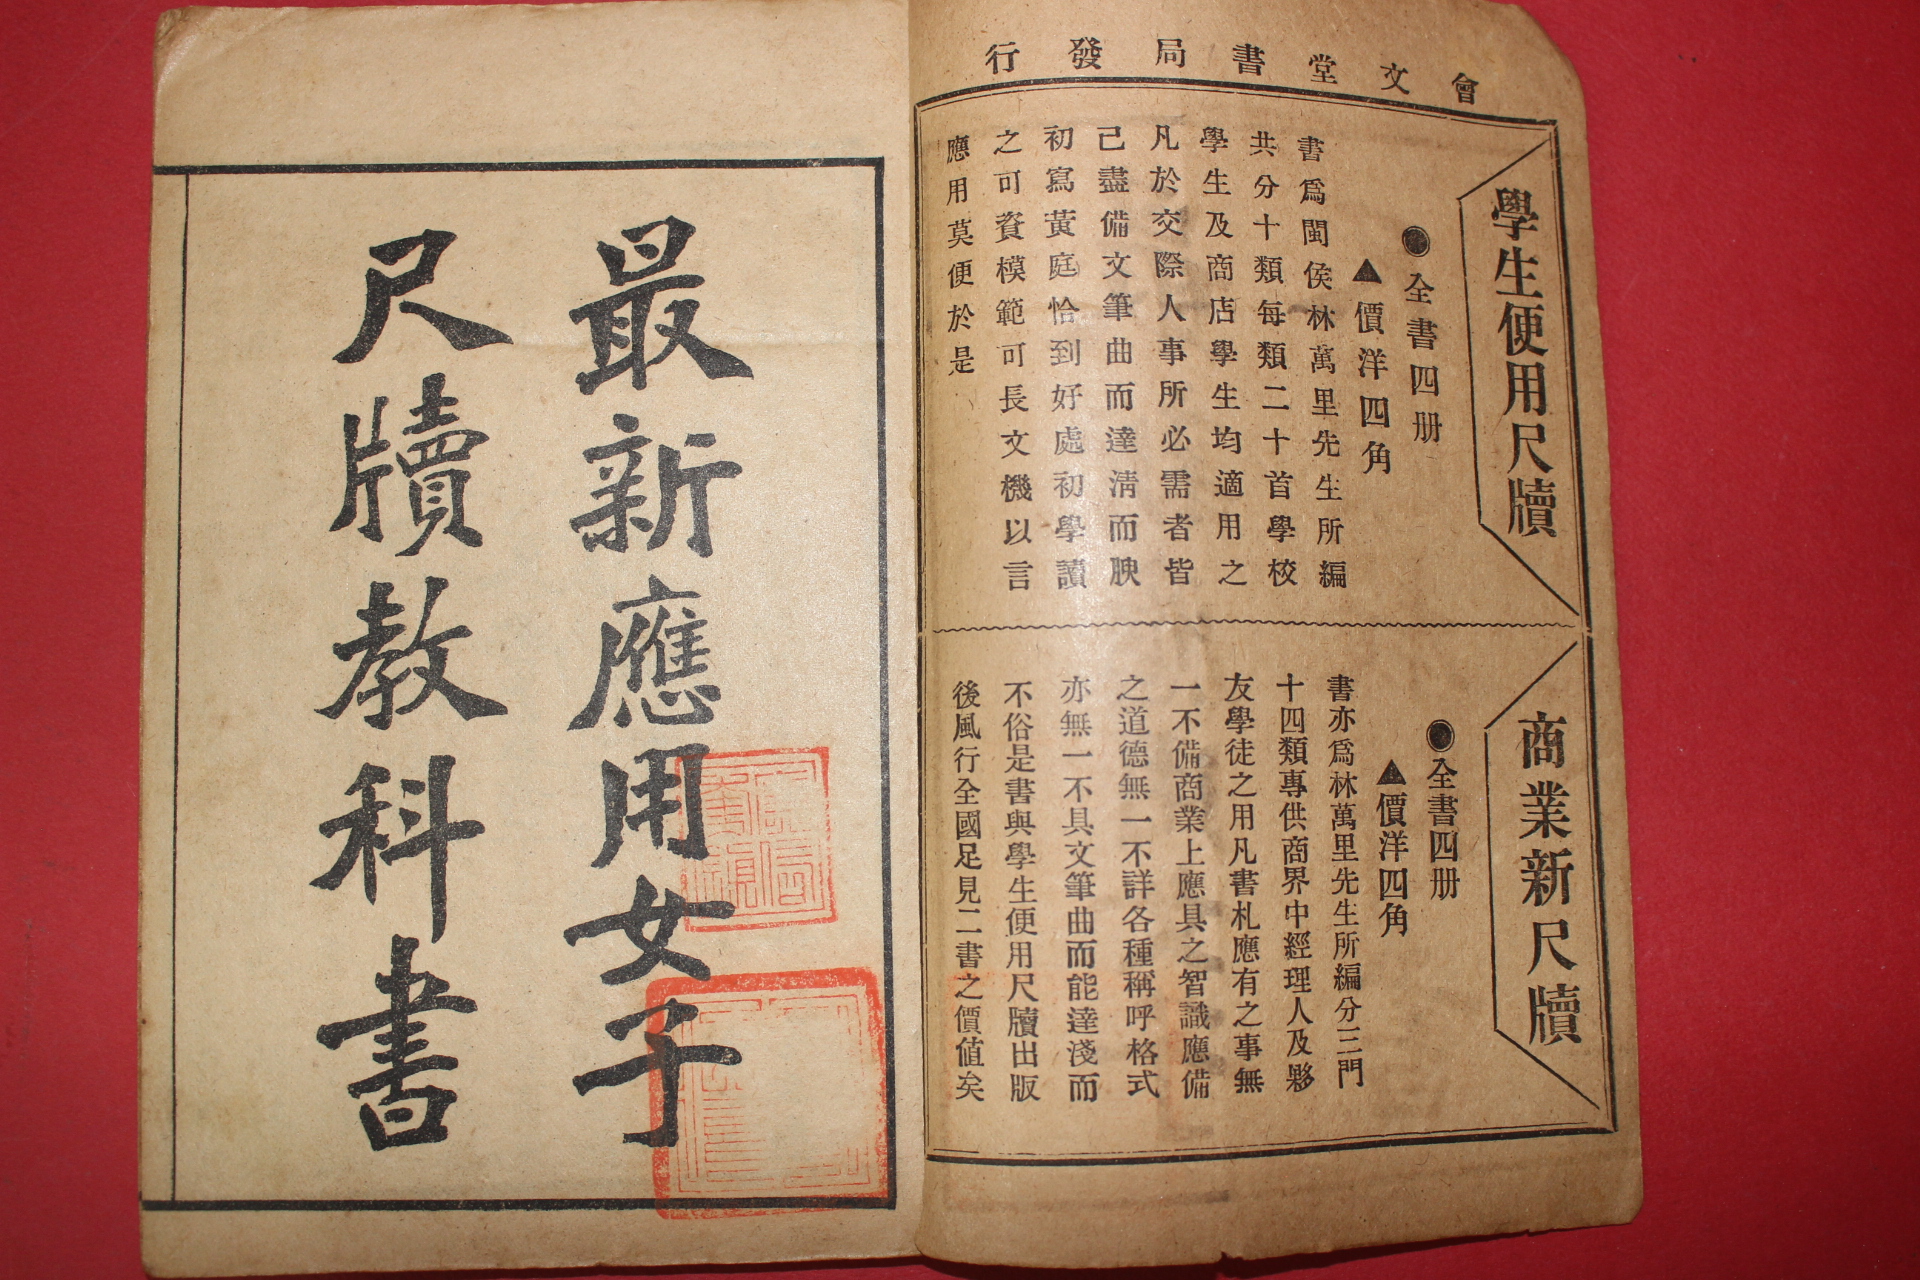 會文堂書局發行
學生便用尺牘
●全書四册
▲價洋四角
書爲閩侯林萬里先生所編
共分十類每類二十首學校
學生及商店學生均適用之
凡於交際人事所必需者皆
己盡備文筆曲而達清而腴
初寫黃庭恰到好處初學讀
之可資模範可長文機以言
應用莫便於是
商業新尺牘
◉全書四册
▲價洋四角
書亦爲林萬里先生所編分三門
十四類專供商界中經理人及夥
友學徒之用凡書札應有之事無
一不備商業上應具之智識應備
之道德無一不詳各種稱呼格式
亦無一不具文筆曲而能達淺而
不俗是書與學生便用尺牘出版
後風行全國足見二書之價值矣
最新應用女子
尺牘教科書